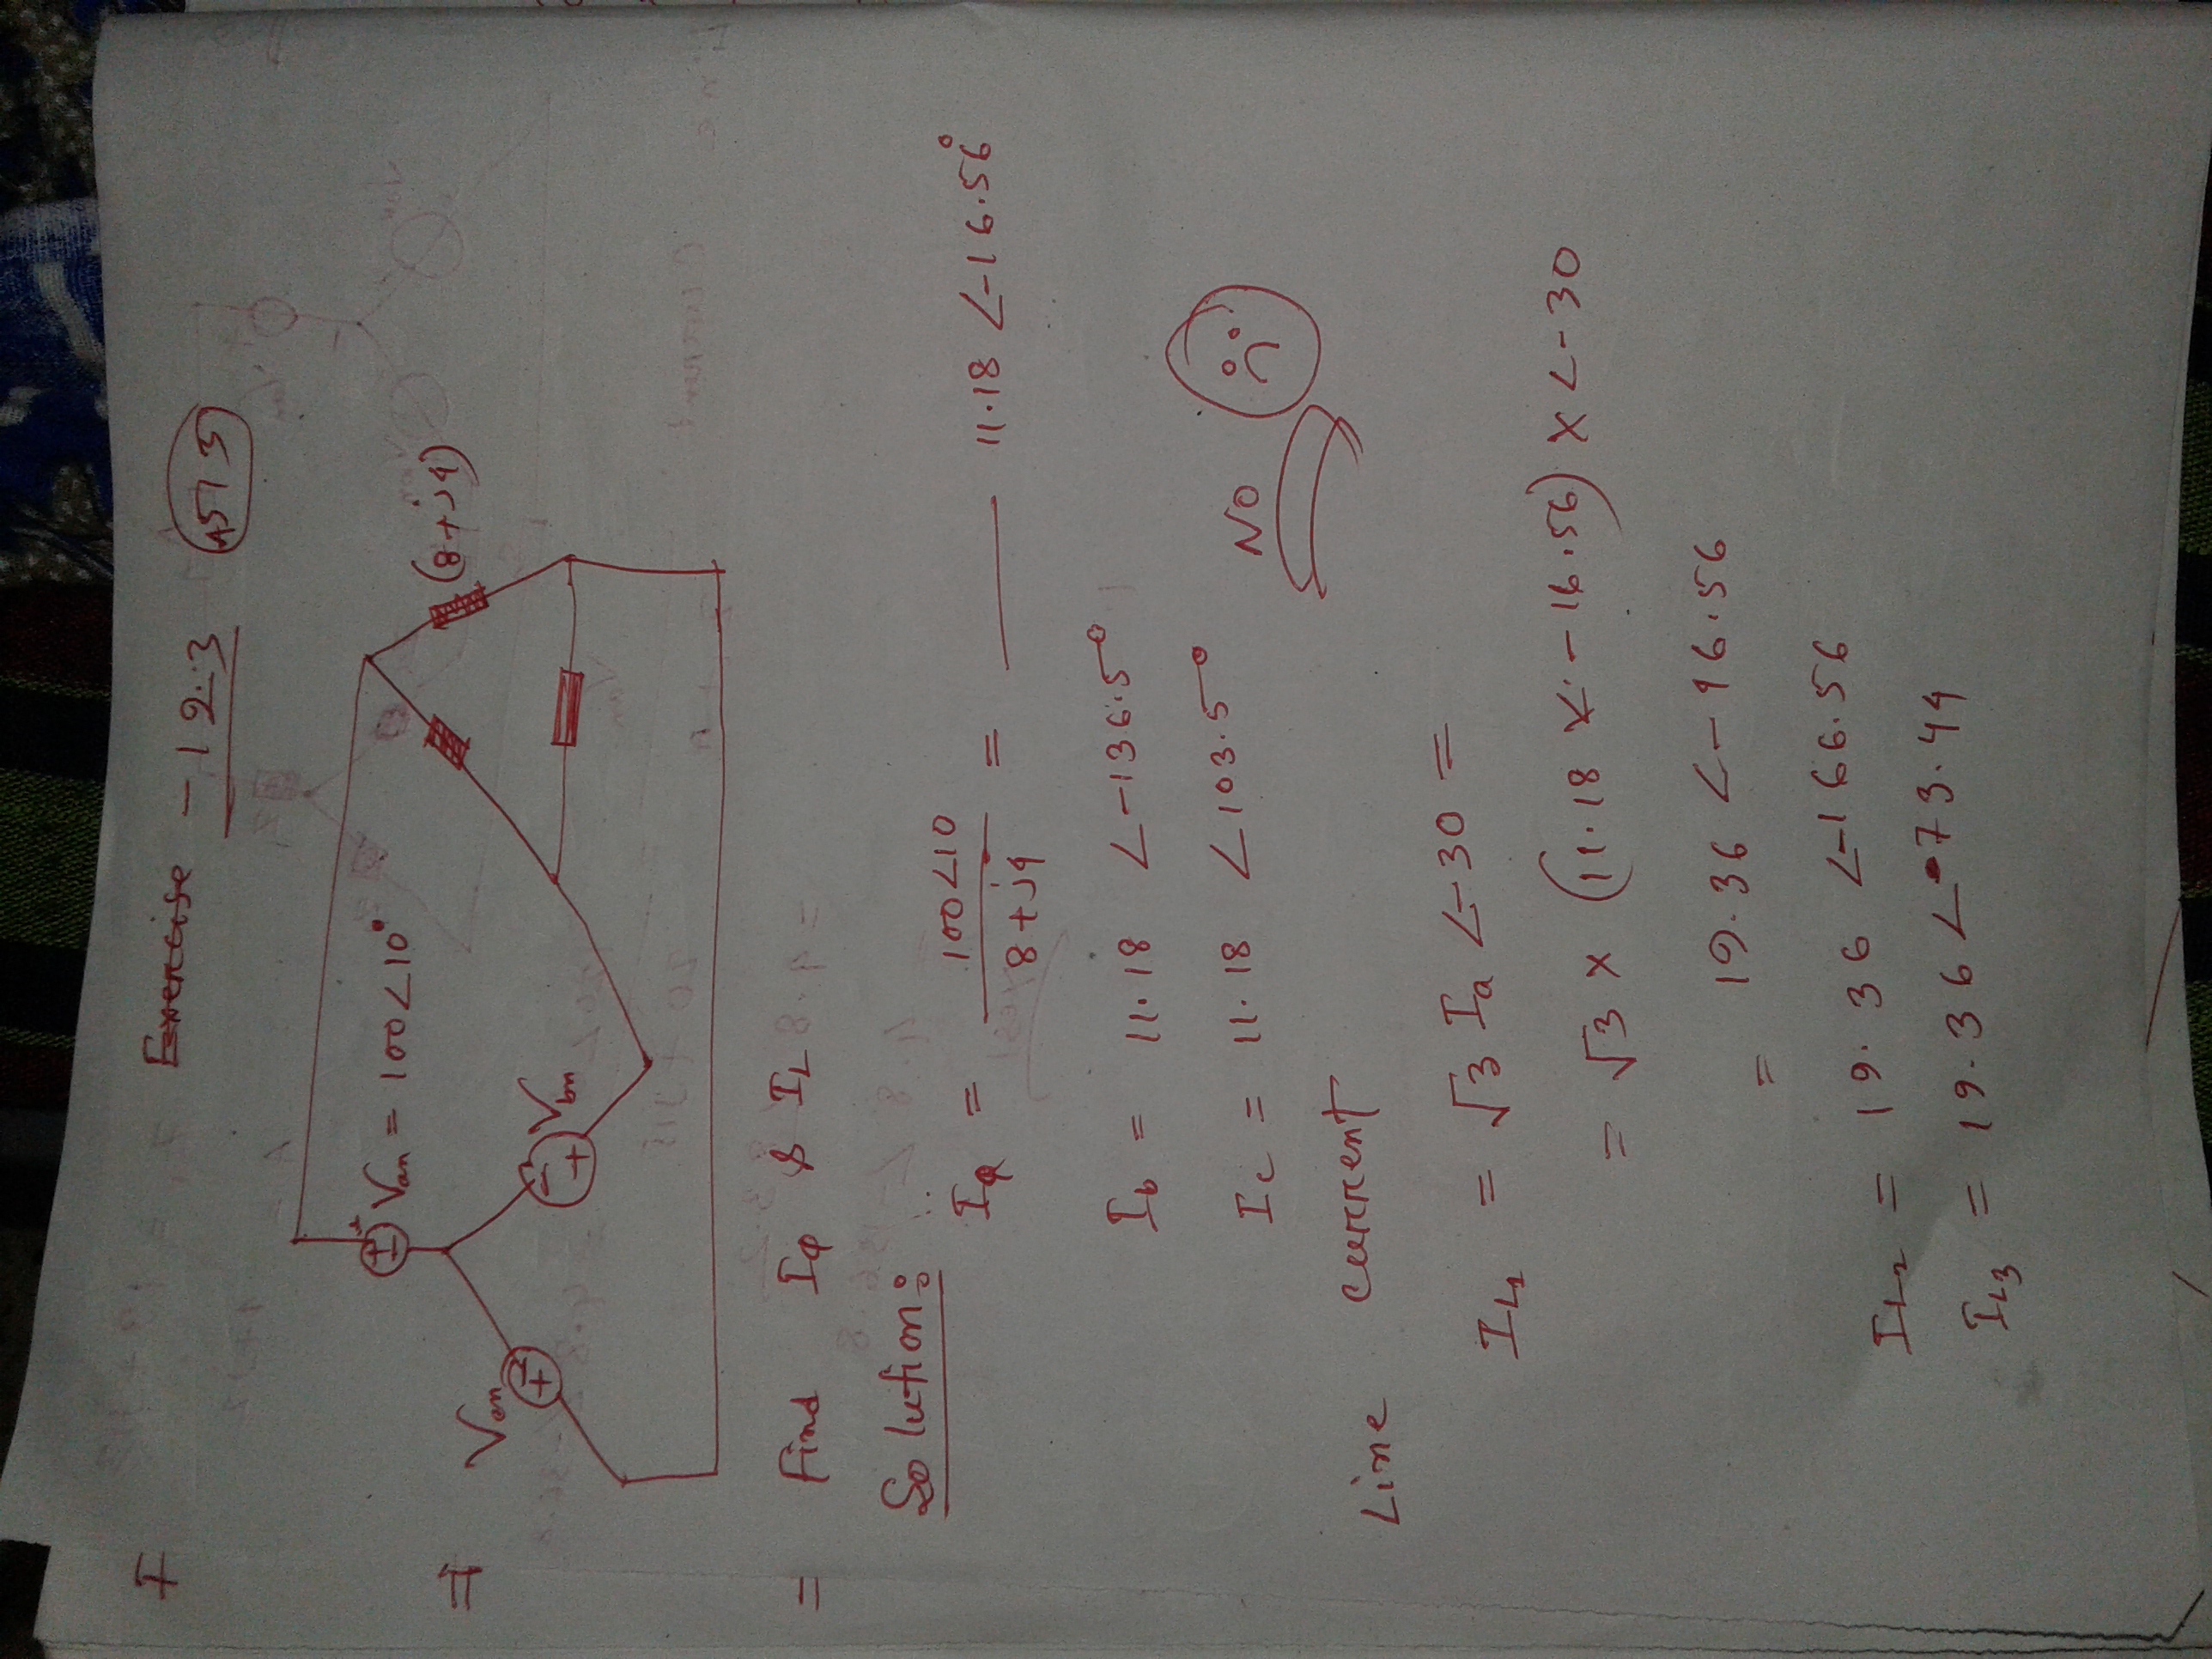 I
Exercise - 12.3 (513)
Van = 100∠10°
⇒
(8+j4)
Vcn
Vbn
= Find Iφ & IL
Solution:
Iφ = 100∠10 / 8+j4 = —— 11.18 ∠-16.56°
Ib = 11.18 ∠-136.5°
Ic = 11.18 ∠103.5°
NO
Line current
IL1 = √3 Ia ∠-30 =
= √3 × (11.18 ∠-16.56) × ∠-30
= 19.36 ∠-46.56
IL2 = 19.36 ∠-166.56
IL3 = 19.36 ∠73.44